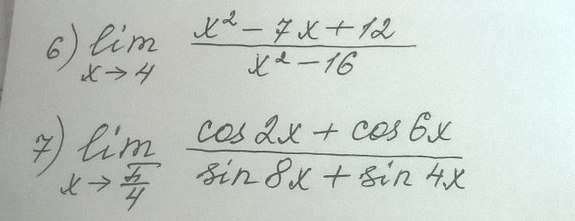 6) lim x→4 (x² − 7x + 12) / (x² − 16)
7) lim x→π/4 (cos 2x + cos 6x) / (sin 8x + sin 4x)